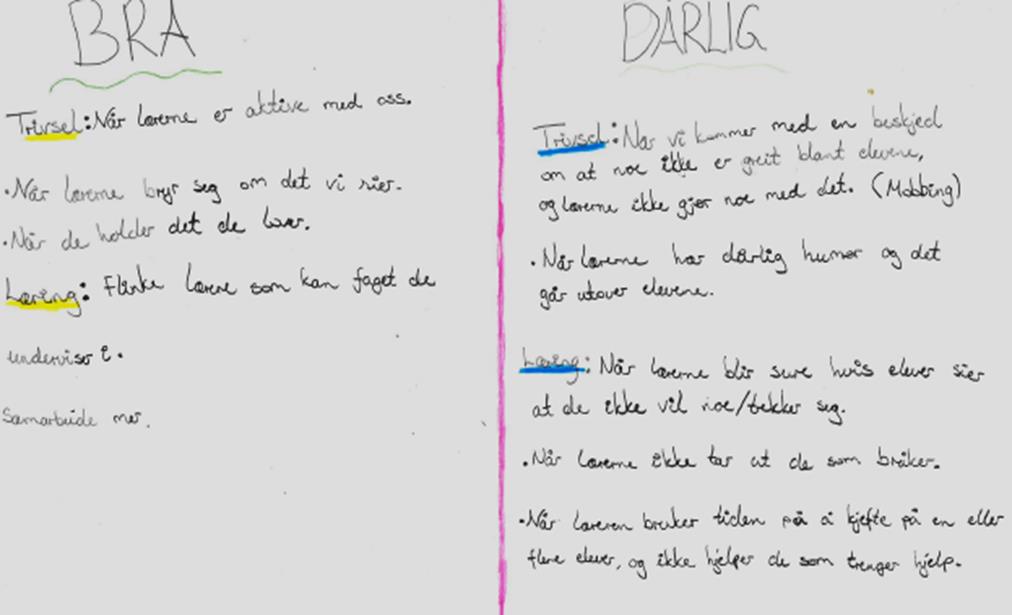 BRA
Trivsel: Når lærerne er aktive med oss.
• Når lærerne bryr seg om det vi sier.
• Når de holder det de lover.
Læring: Flinke lærere som kan faget de
underviser i.
Samarbeide mer.
DÅRLIG
Trivsel: Når vi kommer med en beskjed
om at noe ikke er greit blant elevene,
og lærerne ikke gjør noe med det. (Mobbing)
• Når lærerne har dårlig humør og det
går utover elevene.
Læring: Når lærerne blir sure hvis elever sier
at de ikke vil noe/trekker seg.
• Når lærerne ikke tar ut de som bråker.
• Når læreren bruker tiden på å kjefte på en eller
flere elever, og ikke hjelper de som trenger hjelp.